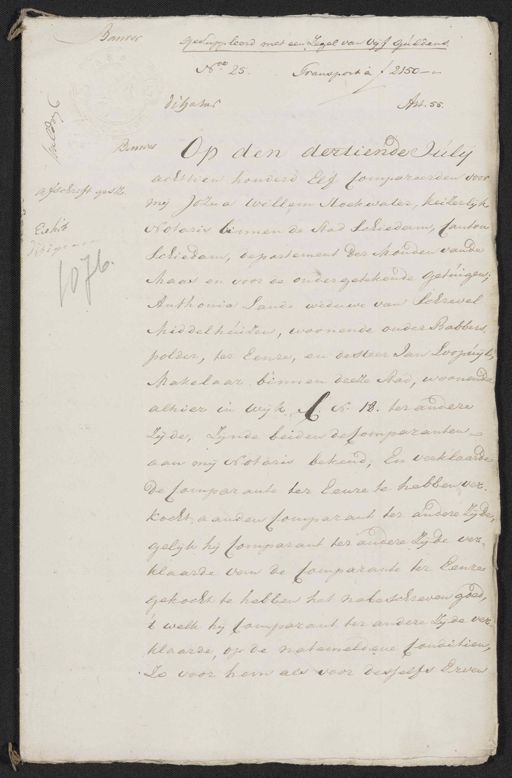 gesuppleerd met een Zegel van Vijf Guldens
No 25. Transport à f 2150—
Art. 55.
afschrift
1076.
Op den dertiende July
achttien honderd Elf Compareerden voor
mij Josua Willem Hoekwater, keiserlijk
Notaris binnen de Stad Schiedam, Canton
Schiedam, departement der Monden vande
Maas en voor de ondergetekende getuigen;
Anthonia Lande weduwe van Schrevel
Middelheiden, woonende onder Babbers
polder, ter Eenre, en de Heer Jan Loopuyt,
Makelaar binnen deese Stad, woonende
alhier in wijk, C, No 18. ter andere
Zijde, Zijnde beiden de Comparanten
aan mij Notaris bekend; En verklaarde
de Comparante ter Eenre te hebben ver-
kocht aan den Comparant ter andere Zijde,
gelijk hij Comparant ter andere Zijde ver-
klaarde van de Comparante ter Eenre
gekocht te hebben het nabeschreven goed,
't welk hij Comparant ter andere Zijde ver-
klaarde, op de natemeldene Conditien,
Zo voor hem als voor deszelfs Erven